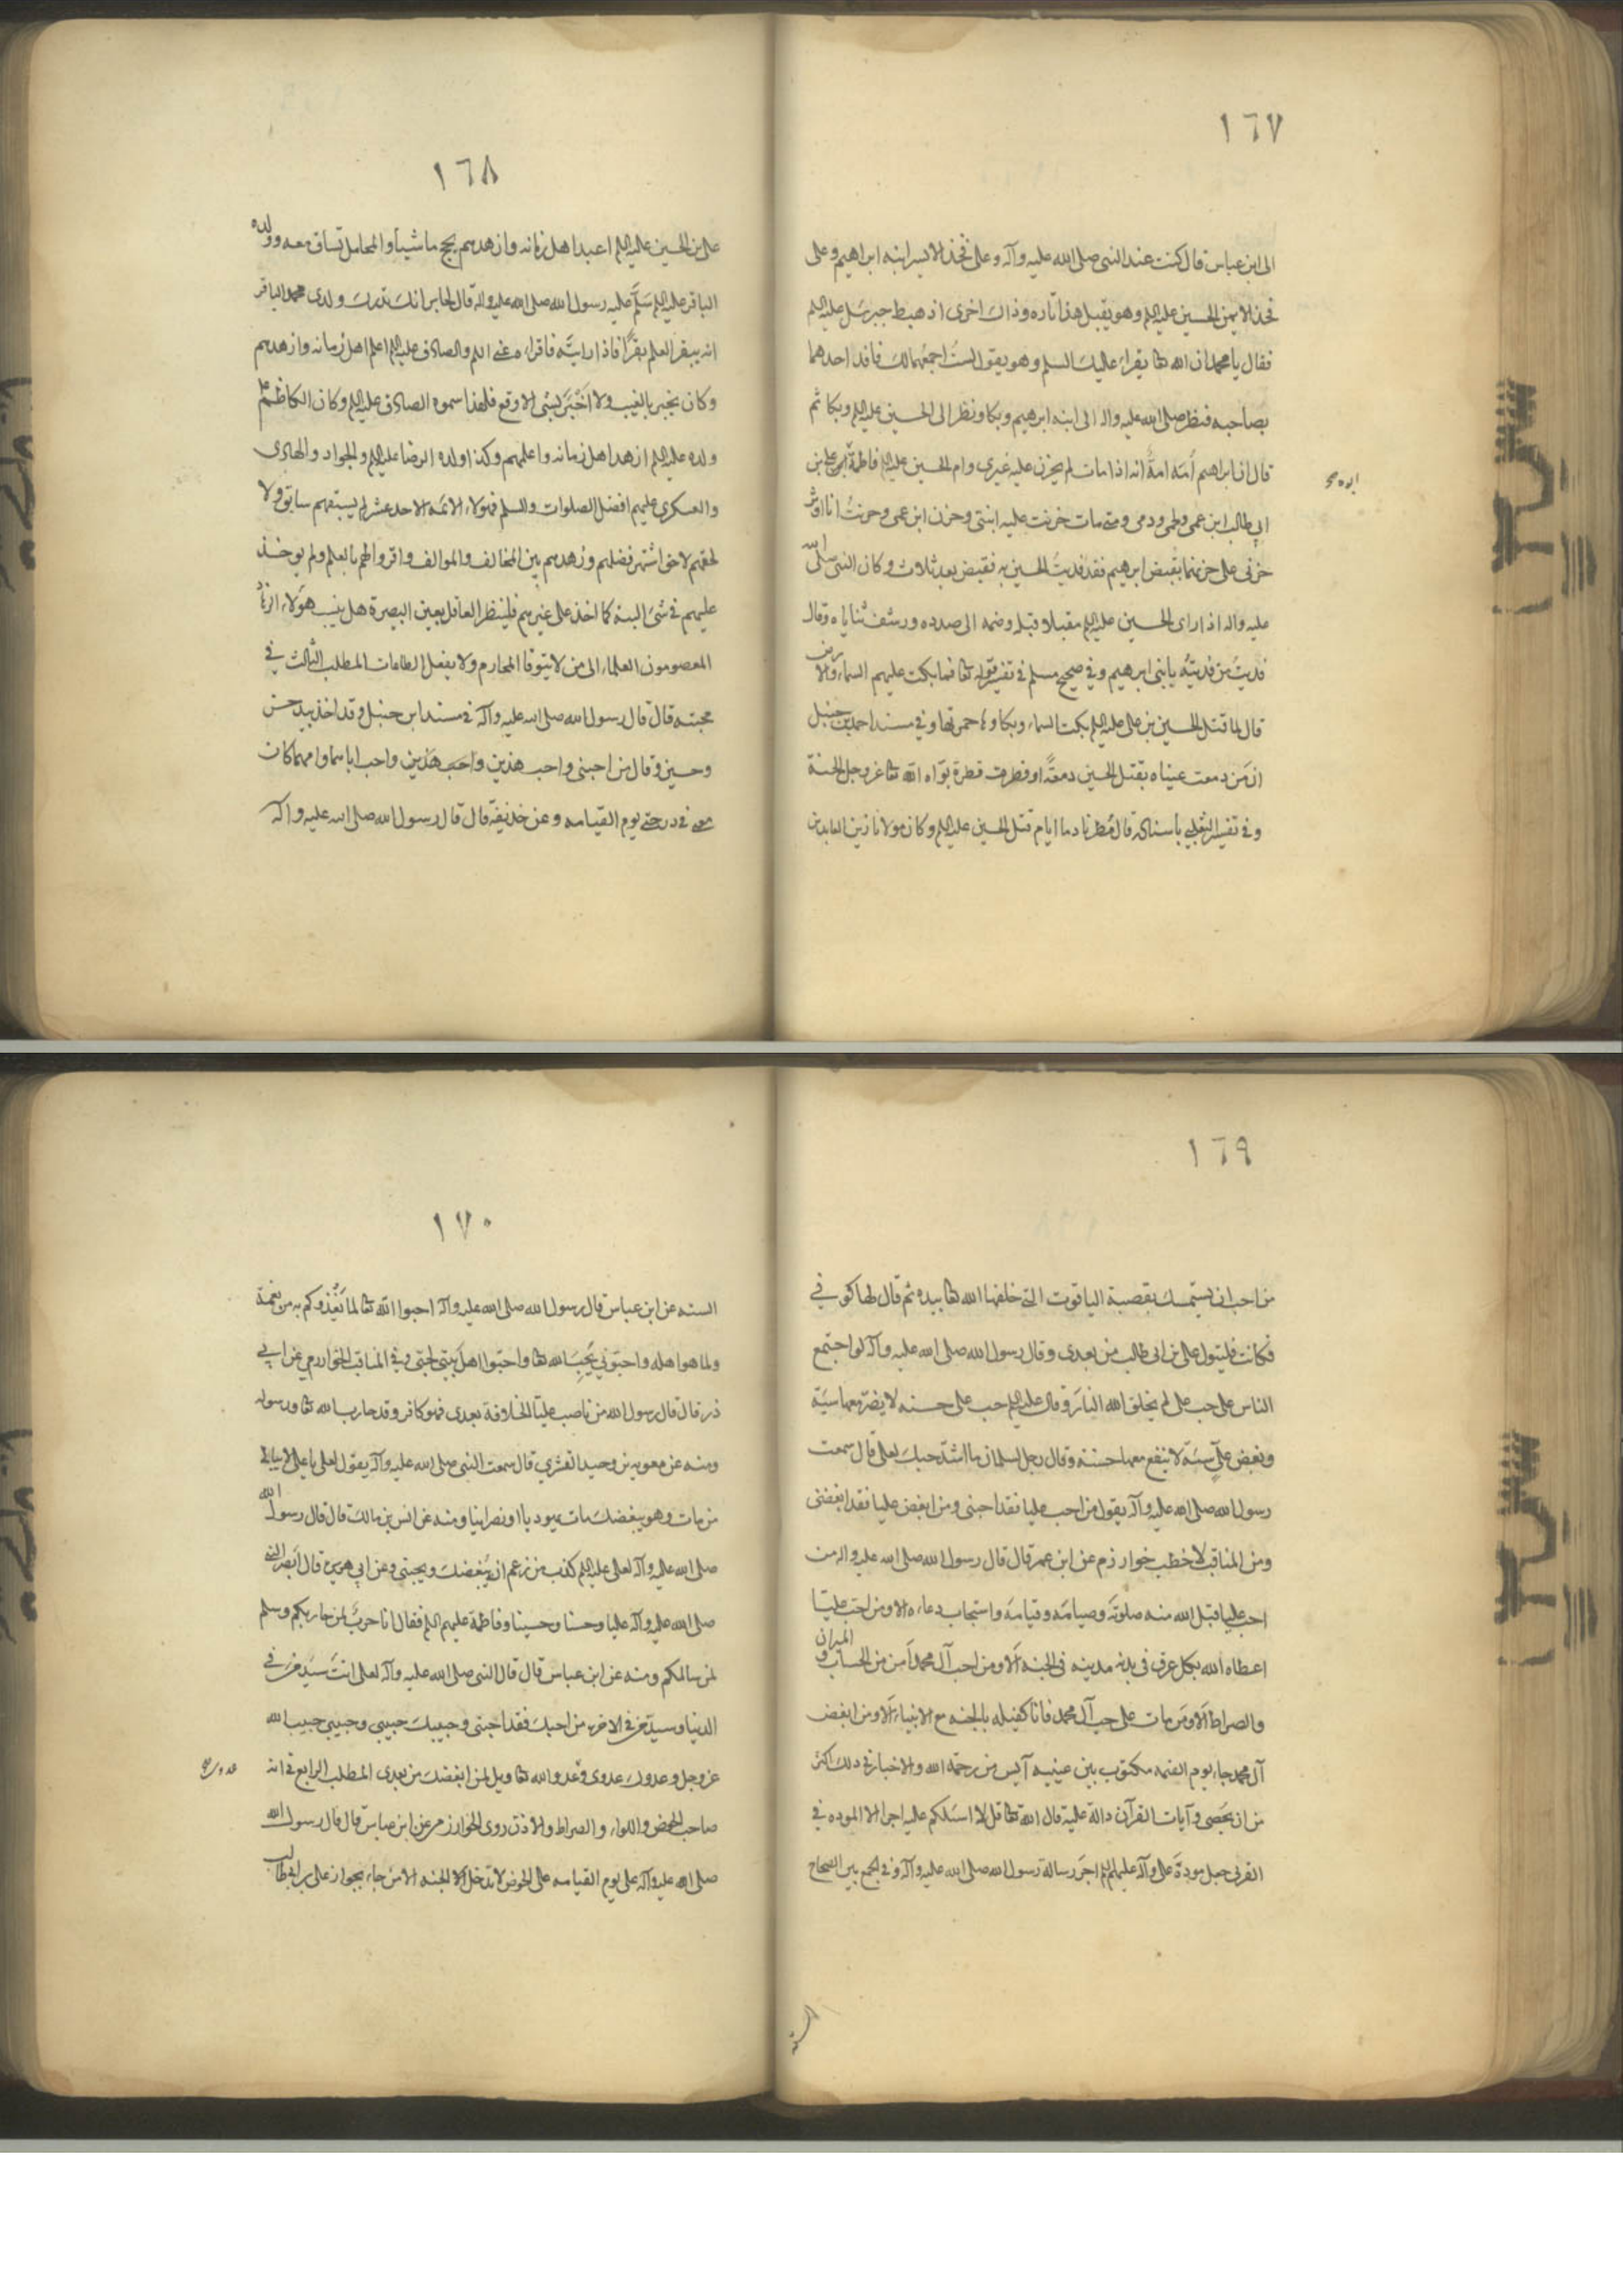 ١٦٧
الى ابن عباس قال كنت عند النبى صلى الله عليه وآله وعلى فخذه الايسر ابنه ابراهيم وعلى
فخذه الايمن الحسين عليه السلم وهو يقبل هذا تاره وذاك اخرى اذ هبط جبرئيل عليه السلم
فقال يا محمد ان الله تعا يقراء عليك السلم وهو يقول لستُ اجمعهما لك فافد احدهما
بصاحبه فنظر صلى الله عليه واله الى ابنه ابرهيم وبكا ونظر الى الحسين عليه السلم وبكا ثم
قال ان ابراهيم اُمّه امةٌ انه اذا مات لم يحزن عليه غيرى وام الحسين عليه السلم فاطمة وابوه على بن
ابى طالب ابن عمى ولحمى ودمى ومتى مات حزنت عليه ابنتى وحزن ابن عمى وحزنتُ انا اوثر
حزنى على حزنهما يقبض ابرهيم فقد فديتُ الحسين به فقبض بعد ثلاث وكان النبى صلى الله
عليه واله اذا راى الحسين عليه السلم مقبلا قبله وضمه الى صدره ورشف ثناياه وقال
فديتُ من فديتُه يا بنى ابرهيم وفي صحيح مسلم في تفسير قوله تعا فما بكت عليهم السماء والارض
قال لما قتل الحسين بن على عليه السلم بكت السماء وبكاوها حمرتها وفي مسند احمد بن حنبل
ان من دمعت عيناه بقتل الحسين دمعةً او قطرت قطرة بوّاه الله تعا عز وجل الجنة
وفي تفسير الثعلبي باسناده قال مُطرنا دما ايام قتل الحسين عليه السلم وكان مولانا زين العابدين
١٦٨
على بن الحسين عليه السلم اعبد اهل زمانه وازهدهم يحج ماشياً والمحامل تساق معه وولده
الباقر عليه السلم سَلَّم عليه رسول الله صلى الله عليه واله قال لجابر انك تدرك ولدى محمد الباقر
انه يبقر العلم بقراً فاذا رايتَه فاقراء منى السلم والصادق عليه السلم اعلم اهل زمانه وازهدهم
وكان يخبر بالغيب ولا اَخْبَرَ بشئ الا وقع فلهذا سموه الصادق عليه السلم وكان الكاظم
ولده عليه السلم ازهد اهل زمانه واعلمهم وكذا ولده الرضا عليه السلم والجواد والهادى
والعسكرى عليهم افضل الصلوات والسلم فهولاء الائمه الاحد عشر لم يسبقهم سابق ولا
لحقهم لاحق اشتهر فضلهم وزهدهم بين المخالف والموالف واقروا لهم بالعلم ولم يوخذ
عليهم في شئ البته كما اخذ على غيرهم فلينظر العاقل بعين البصيرة هل ينسب هولاء
المعصومون العلماء الى من لا يتوقا المحارم ولا يفعل الطاعات المطلب الثالث في
محبته قال قال رسول الله صلى الله عليه وآله في مسند ابن حنبل وقد اخذ بيد حسن
وحسين وقال من احبنى واحب هذين واحب هذين واحب اباهما وامهما كان
معى في درجتى يوم القيامه وعن حذيفة قال قال رسول الله صلى الله عليه وآله
١٦٩
من احب ان يستمسك بقصبة الياقوت التى خلقها الله تعا بيده ثم قال لها كونى
فكانت فليتول على بن ابى طالب من بعدى وقال رسول الله صلى الله عليه وآله لو اجتمع
الناس على حب على لم يخلق الله النار وقال عليه السلم حب على حسنه لا يضر معها سيّة
وبغض علىّ سيّة لا ينفع معها حسنة وقال رجل لسلمان ما اشدّ حبك لعلى قال سمعت
رسول الله صلى الله عليه وآله يقول من احب عليا فقد احبنى ومن ابغض عليا فقد ابغضنى
ومن المناقب لاخطب خوارزم عن ابن عمر قال قال رسول الله صلى الله عليه واله من
احب عليا قبل الله منه صلوتَه وصيامَه وقيامَه واستجاب دعاءه الا ومن احبّ عليّا
اعطاه الله بكل عرق في بدنه مدينه في الجنه اَلا ومن احب آل محمد اَمِن من الحساب والميزان
والصراط اَلا ومَن مات على حب آل محمد فانا كفيله بالجنه مع الانبياء اَلا ومن ابغض
آل محمد جاء يوم القيمه مكتوب بين عينيه آيس من رحمة الله والاخبار في ذلك اكثر
من ان يحصى وآيات القرآن دالة عليه قال الله تعا قل لا اسئلكم عليه اجرا الا الموده في
القربى جعل مودة على وآله عليهم السلم اجرَ رسالة رسول الله صلى الله عليه وآله وفي الجمع بين الصحاح
السته
١٧٠
السته عن ابن عباس قال رسول الله صلى الله عليه وآله احبوا الله تعا لما يغذوكم به من نعمة
ولما هو اهله واحبّونى لحُبّ الله تعا واحبّوا اهل بيتى لحبّى وفي المناقب للخوارزمي عن ابي
ذر قال قال رسول الله من ناصب عليّا الخلافة بعدى فهو كافر وقد حارب الله تعا ورسوله
ومنه عن معويه بن وحيد القشرى قال سمعت النبى صلى الله عليه وآله يقول لعلى يا على لا يبالى
من مات وهو يبغضك مات يهوديا او نصرانيا ومنه عن انس بن مالك قال قال رسول الله
صلى الله عليه وآله لعلى عليه السلم كذب من زعم انه يُبغضك ويحبنى وعن ابي هريره قال اَبصر النبى
صلى الله عليه وآله عليا وحسنا وحسينا وفاطمة عليهم السلم فقال انا حربٌ لمن حاربكم وسلم
لمن سالمكم ومنه عن ابن عباس قال قال النبى صلى الله عليه وآله لعلى انتَ سيّد في
الدنيا وسيدٌ في الاخره من احبك فقد احبّنى وحبيبك حبيبى وحبيبى حبيب الله
عز وجل وعدوك عدوى وعدوى عدو الله تعا ويل لمن ابغضك من بعدى المطلب الرابع في انه
صاحب الحوض واللواء والصراط والاذن روى الخوارزمى عن ابن عباس قال قال رسول الله
صلى الله عليه وآله على يوم القيامه على الحوض لا يدخل الا الجنه الا من جاء بجواز على بن ابى طالب